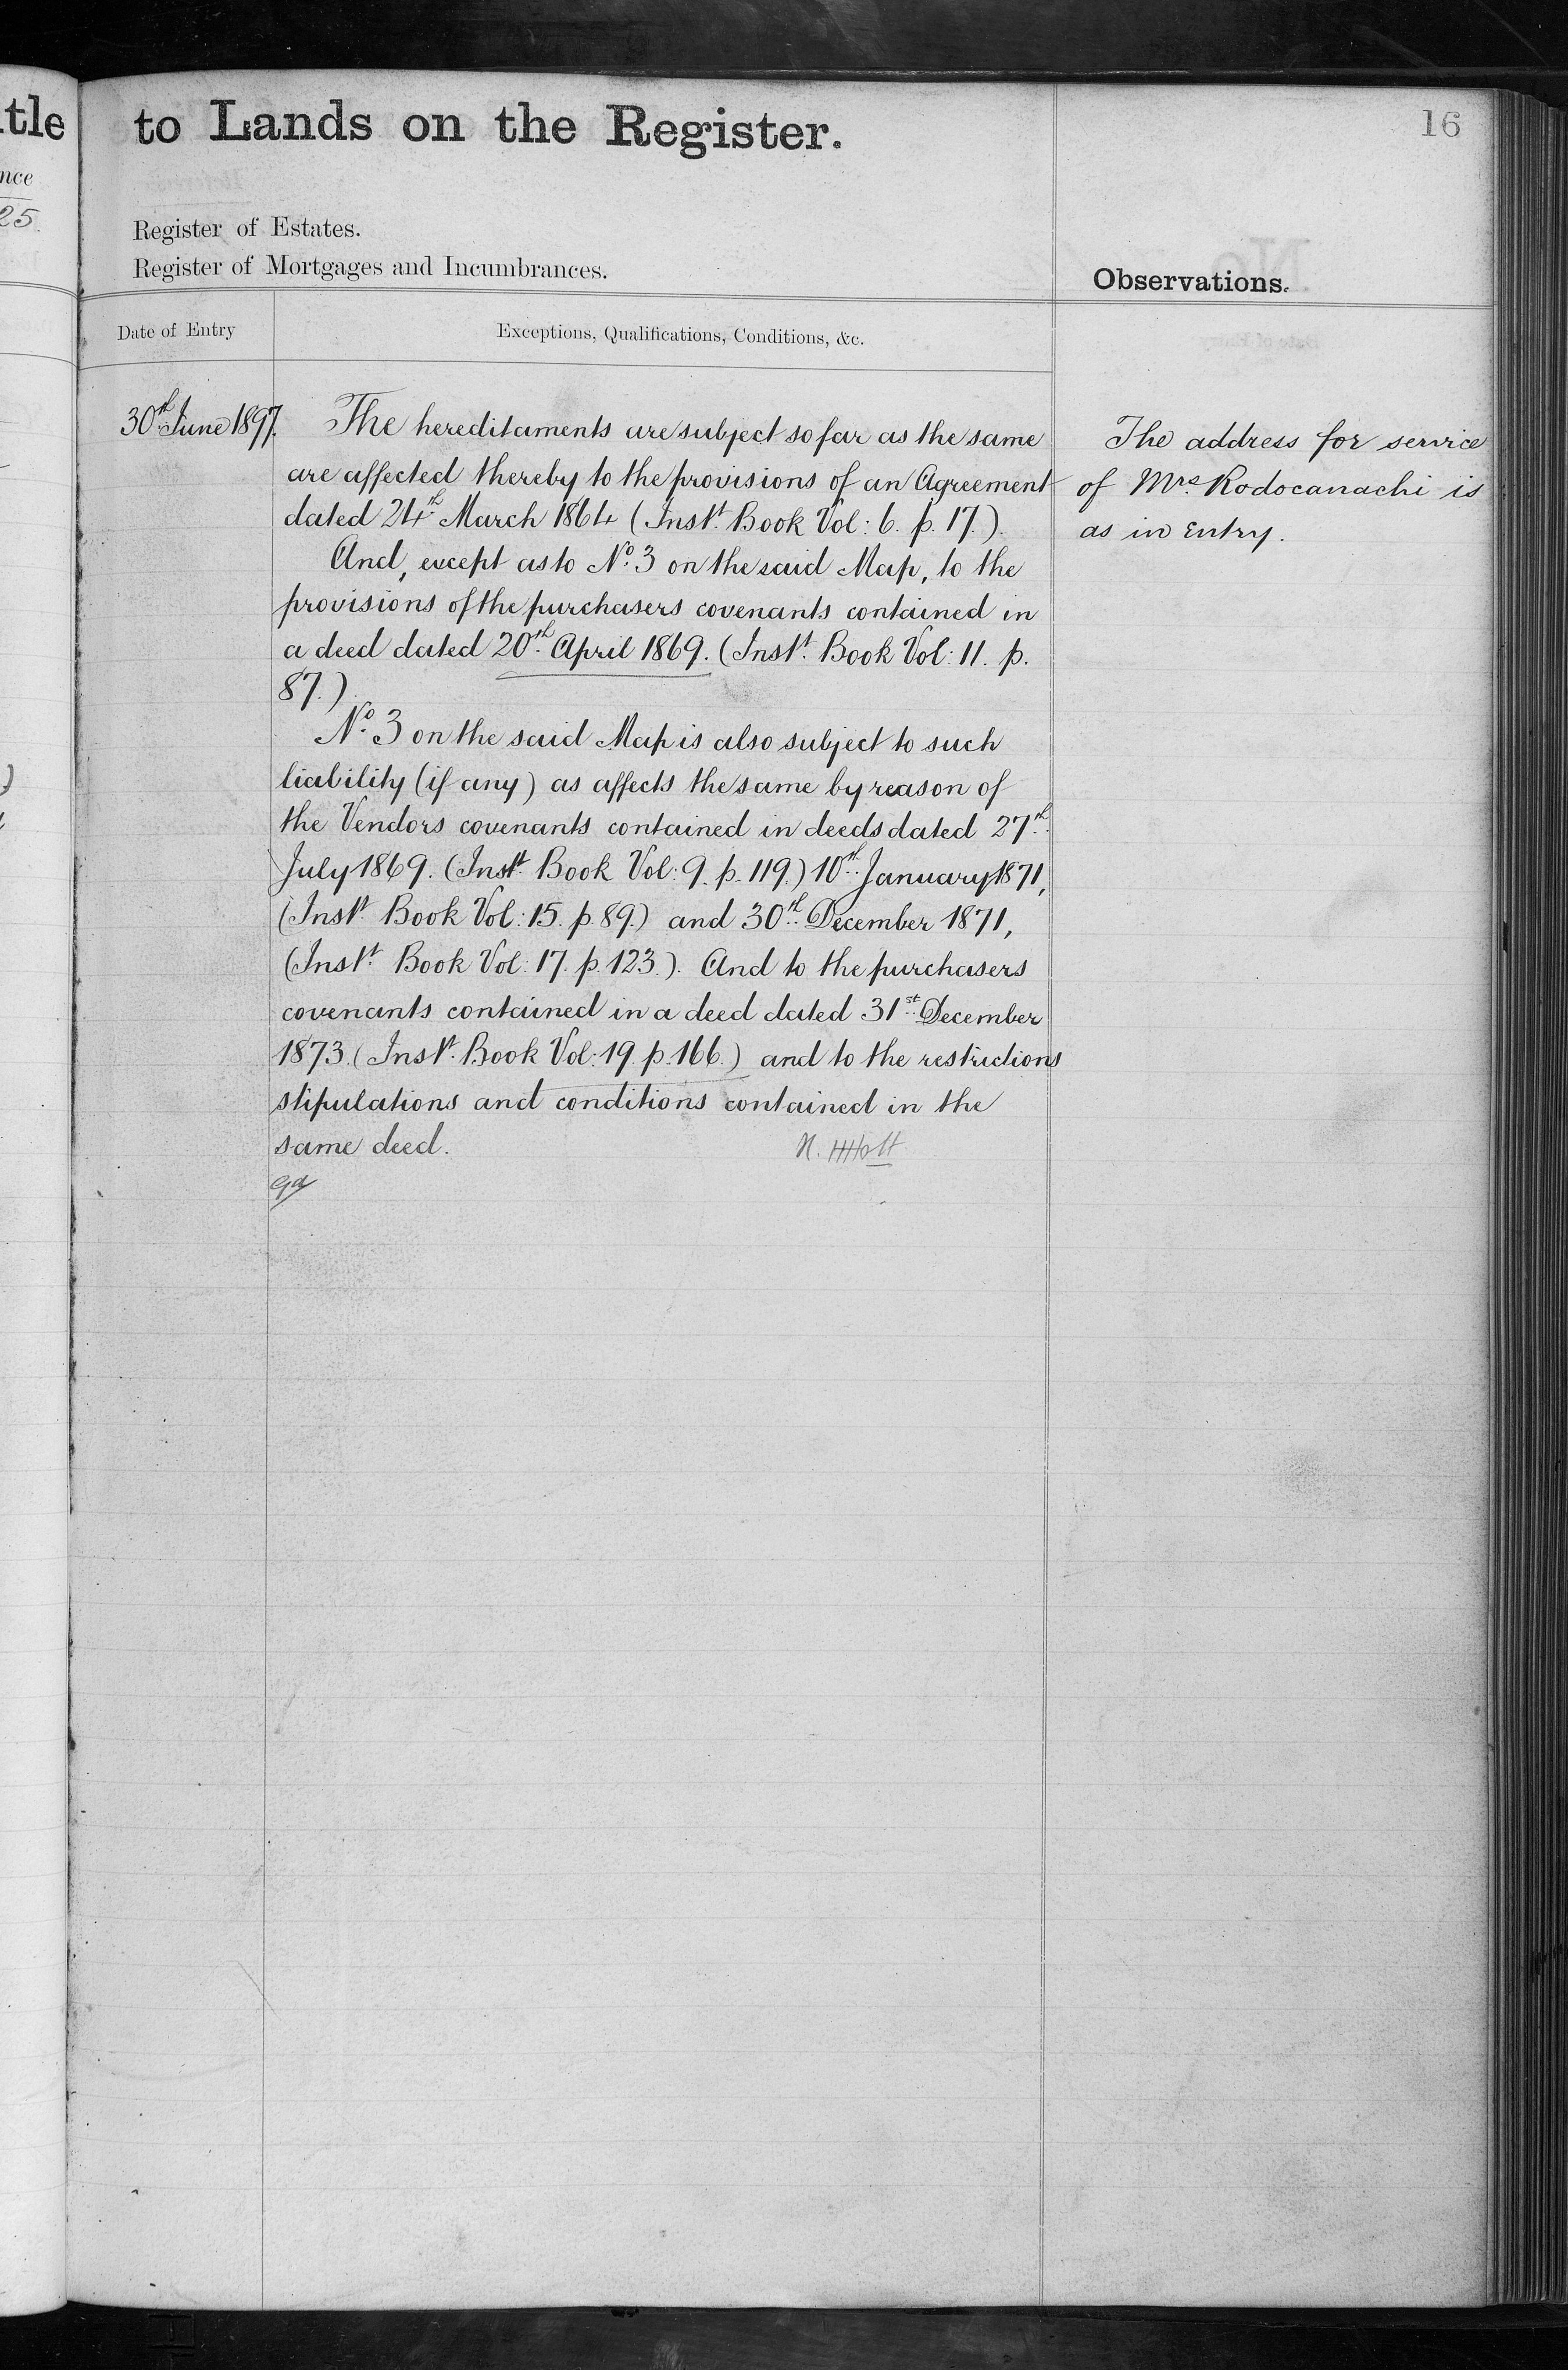 tle
nce
25.
to Lands on the Register.
16
Register of Estates.
Register of Mortgages and Incumbrances.
Observations.
Date of Entry
Exceptions, Qualifications, Conditions, &c.
30th June 1897.
The hereditaments are subject so far as the same
are affected thereby to the provisions of an Agreement
dated 24th March 1864 (Instt. Book Vol: 6. p. 17.).
And, except as to No. 3 on the said Map, to the
provisions of the purchasers covenants contained in
a deed dated 20th April 1869. (Instt. Book Vol: 11. p.
87.)
No. 3 on the said Map is also subject to such
liability (if any) as affects the same by reason of
the Vendors covenants contained in deeds dated 27th
July 1869. (Instt. Book Vol: 9. p. 119.) 10th January 1871,
(Instt. Book Vol: 15. p. 89.) and 30th December 1871,
(Instt. Book Vol: 17. p. 123.). And to the purchasers
covenants contained in a deed dated 31st December
1873. (Instt. Book Vol: 19. p. 166.) and to the restrictions
stipulations and conditions contained in the
same deed.
The address for service
of Mrs. Rodocanachi is
as in Entry.